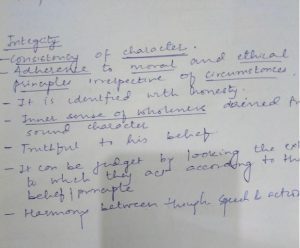 Integrity
- Consistency of character.
- Adherence to moral and ethical
principles irrespective of circumstances.
- It is identified with honesty.
- Inner sense of wholeness derived
sound character
- Truthful to his belief
- It can be judget by looking the
to which they act according to
belief/principle
- Harmony between though speech & action